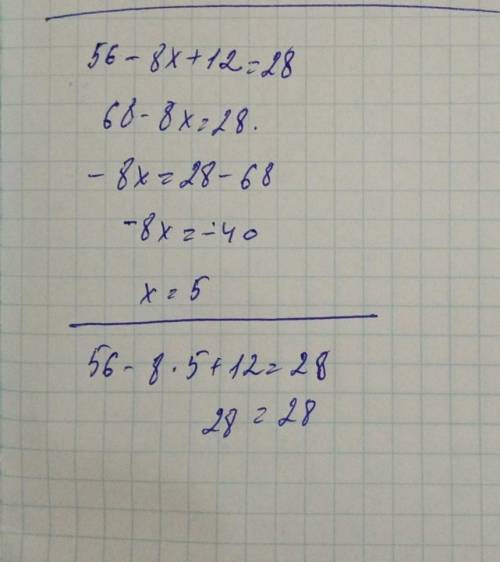 56 - 8x + 12 = 28
68 - 8x = 28.
- 8x = 28 - 68
-8x = -40
x = 5
56 - 8 · 5 + 12 = 28
28 = 28